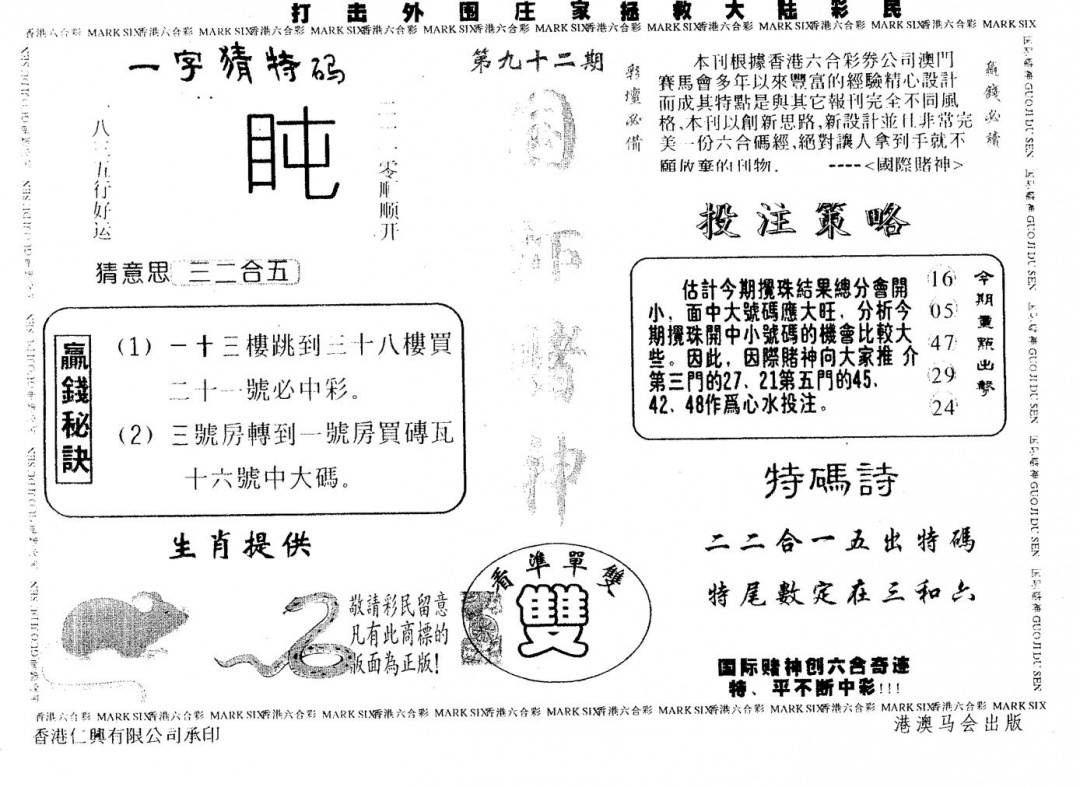 打击外围庄家拯救大陆彩民
香港六合彩 MARK SIX香港六合彩 MARK SIX香港六合彩 MARK SIX香港六合彩 MARK SIX香港六合彩 MARK SIX香港六合彩 MARK SIX香港六合彩 MARK SIX香港六合彩 MARK SIX香港六合彩 MARK SIX
一字猜特码
八三五行好运
盹
零顺顺开
猜意思 三二合五
第九十二期
彩壇必備
本刊根據香港六合彩券公司澳門
賽馬會多年以來豐富的經驗精心設計
而成其特點是與其它報刊完全不同風
格、本刊以創新思路,新設計並且非常完
美一份六合碼經,絕對讓人拿到手就不
願放棄的刊物. ----<國際賭神>
贏錢必讀
贏錢秘訣
(1) 一十三樓跳到三十八樓買
二十一號必中彩。
(2) 三號房轉到一號房買磚瓦
十六號中大碼。
国际賭神
投注策略
估計今期攪珠結果總分會開
小，面中大號碼應大旺，分析今
期攪珠開中小號碼的機會比較大
些。因此，因際賭神向大家推 介
第三門的27、21第五門的45、
42、48作爲心水投注。
16
05
47
29
24
今期重點出擊
特碼詩
二二合一五出特碼
特尾數定在三和六
生肖提供
敬請彩民留意
凡有此商標的
版面為正版!
看準單雙
雙
国际赌神创六合奇迹
特、平不断中彩!!!
GUO JI DU SEN
香港六合彩 MARK SIX香港六合彩 MARK SIX香港六合彩 MARK SIX香港六合彩 MARK SIX香港六合彩 MARK SIX香港六合彩 MARK SIX香港六合彩 MARK SIX香港六合彩 MARK SIX香港六合彩 MARK SIX
香港仁興有限公司承印
港澳马会出版